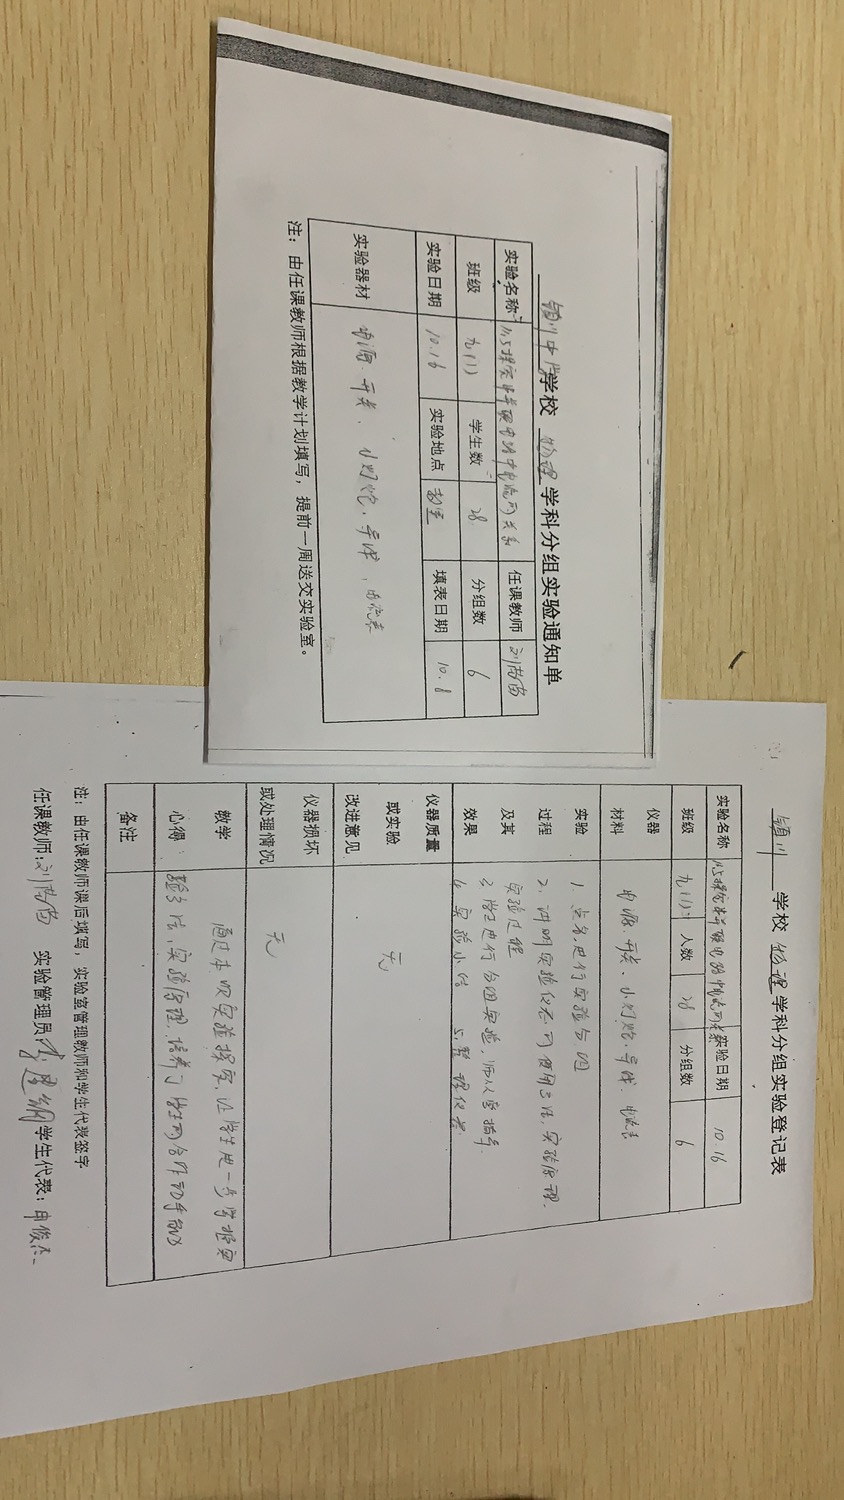 学校 物理 学科分组实验通知单
实验名称 11.5探究串并联电路中电流的关系 任课教师
班级 九(1) 学生数 28 分组数 6
实验日期 10.16 实验地点 教室 填表日期 10.8
实验器材 电源、开关、小灯炮、导线、电流表
注：由任课教师根据教学计划填写，提前一周送交实验室。
颍川 学校 物理 学科分组实验登记表
实验名称 11.5探究串并联电路中电流的关系 实验日期 10.16
班级 九(1) 人数 28 分组数 6
仪器
材料
电源、开关、小灯炮、导线、电流表
实验
过程
及其
效果
1. 点名，进行实验分组
2. 讲明实验仪器的使用方法，实验原理、
实验过程
3. 学生进行分组实验，师从旁指导
4. 实验小结 5. 整理仪器
仪器质量
或实验
改进意见
无
仪器损坏
或处理情况
无
教学
心得
通过本次实验探究，让学生进一步掌握实
验方法，实验原理，培养了学生的合作动手能力
备注
注：由任课教师课后填写，实验室管理教师和学生代表签字
任课教师： 实验管理员： 学生代表：申俊杰